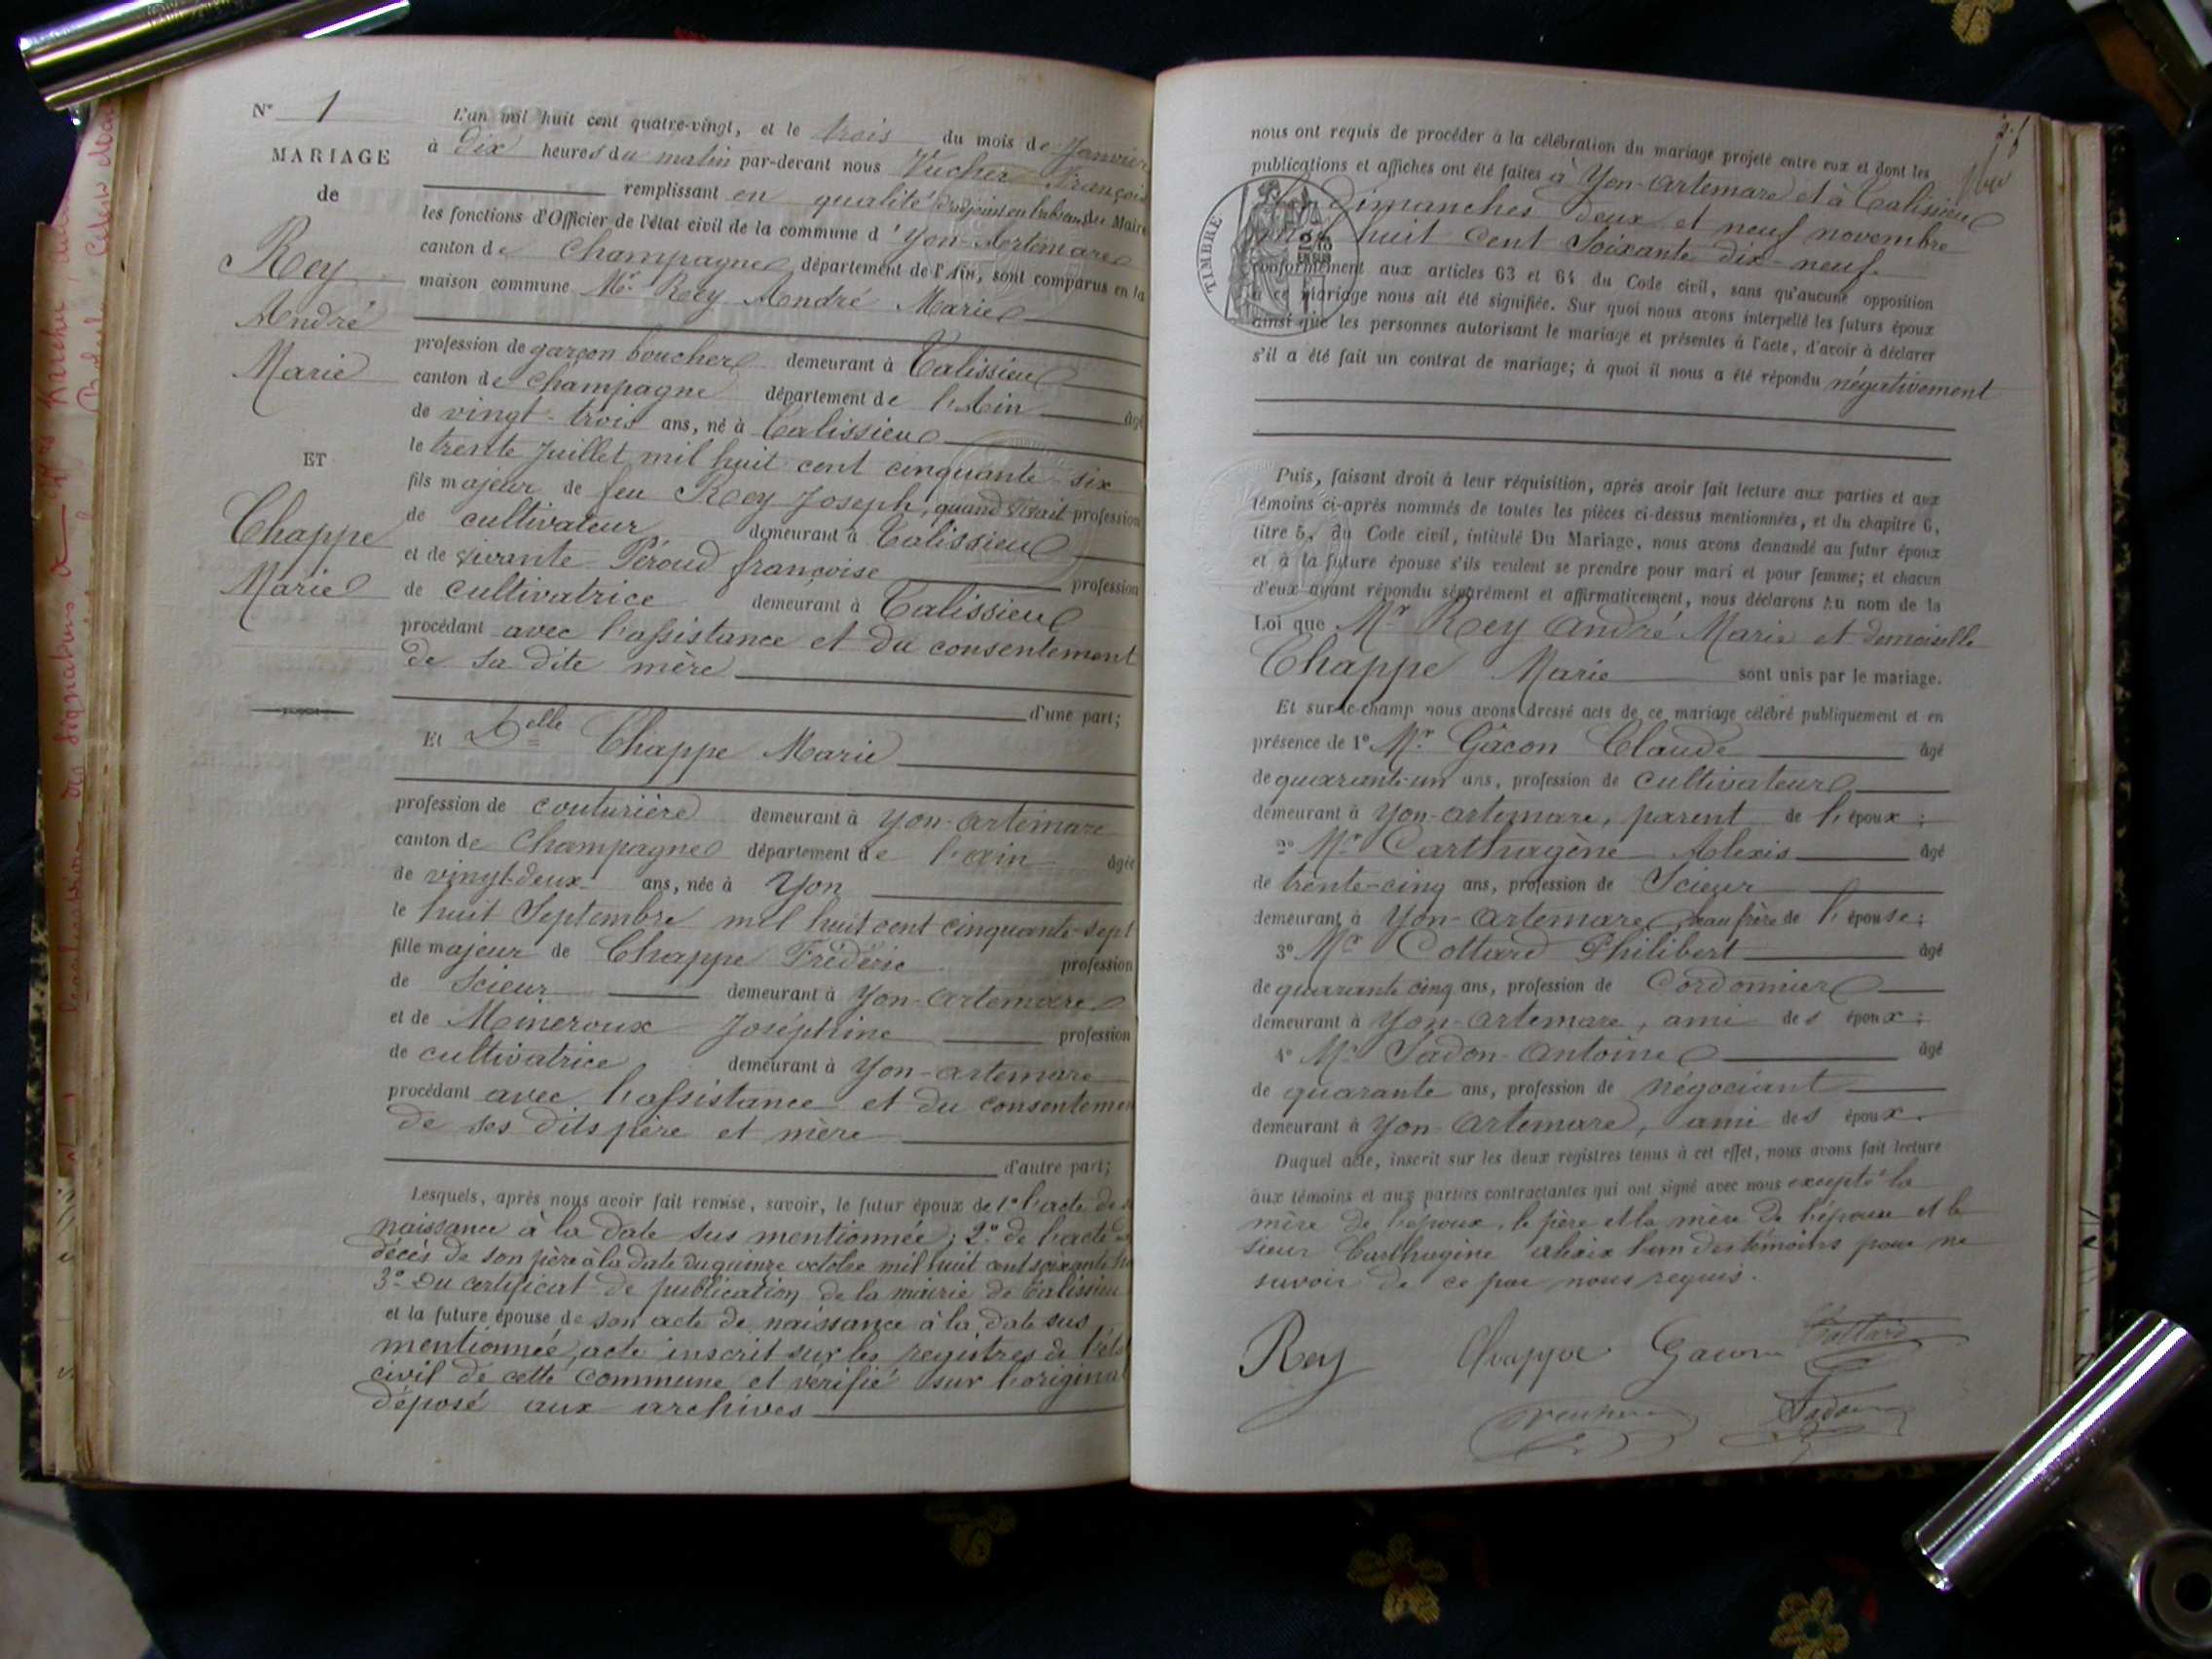 N° 1
MARIAGE
de
Rey
André
Marie
ET
Chappe
Marie
L'an mil huit cent quatre-vingt, et le trois du mois de Janvier
à Dix heures du matin par-devant nous Vucher François
remplissant en qualité d'adjoint en l'absence du Maire
les fonctions d'Officier de l'état civil de la commune d'Yon-Artemare
canton de Champagne, département de l'Ain, sont comparus en la
maison commune Mr. Rey André Marie
profession de garçon boucher demeurant à Talissieu
canton de Champagne département de l'Ain âgé
de vingt-trois ans, né à Talissieu
le trente Juillet mil huit cent cinquante-six
fils majeur de feu Rey Joseph, quand vivait profession
de cultivateur demeurant à Talissieu
et de vivante Péroud françoise profession
de cultivatrice demeurant à Talissieu
procédant avec l'assistance et du consentement
de sa dite mère
d'une part;
Et Delle Chappe Marie
profession de couturière demeurant à Yon-Artemare
canton de Champagne département de l'ain âgée
de vingt-deux ans, née à Yon
le huit Septembre mil huit cent cinquante-sept
fille majeur de Chappe Frédéric profession
de Scieur demeurant à Yon-Artemare
et de Mineroux Joséphine profession
de cultivatrice demeurant à Yon-artemare
procédant avec l'assistance et du consentemen
de ses dits père et mère
d'autre part;
Lesquels, après nous avoir fait remise, savoir, le futur époux de 1° l'acte de
naissance à la date sus mentionnée; 2° de l'acte de
décès de son père à la date du quinze octobre mil huit cent soixante
3° Du certificat de publication de la mairie de Talissieu
et la future épouse de son acte de naissance à la date sus
mentionnée, acte inscrit sur les registres de l'état
civil de cette commune et vérifié sur l'original
déposé aux archives
nous ont requis de procéder à la célébration du mariage projeté entre eux et dont les
publications et affiches ont été faites à Yon-Artemare et à Talissieu
Dimanches deux et neuf novembre
huit cent Soixante dix-neuf.
conformément aux articles 63 et 64 du Code civil, sans qu'aucune opposition
à ce mariage nous ait été signifiée. Sur quoi nous avons interpellé les futurs époux
ainsi que les personnes autorisant le mariage et présentes à l'acte, d'avoir à déclarer
s'il a été fait un contrat de mariage; à quoi il nous a été répondu négativement
TIMBRE
Puis, faisant droit à leur réquisition, après avoir fait lecture aux parties et aux
témoins ci-après nommés de toutes les pièces ci-dessus mentionnées, et du chapitre 6,
titre 5, du Code civil, intitulé Du Mariage, nous avons demandé au futur époux
et à la future épouse s'ils veulent se prendre pour mari et pour femme; et chacun
d'eux ayant répondu séparément et affirmativement, nous déclarons Au nom de la
Loi que Mr Rey André Marie et demoiselle
Chappe Marie sont unis par le mariage.
Et sur-le-champ nous avons dressé acte de ce mariage célébré publiquement et en
présence de 1° Mr. Gâcon Claude âgé
de quarante-un ans, profession de cultivateur
demeurant à Yon-artemare, parent de l'époux;
2° Mr Carthagène Alexis âgé
de trente-cinq ans, profession de Scieur
demeurant à Yon-Artemare beau frère de l'épouse;
3° Mr Cottard Philibert âgé
de quarante cinq ans, profession de Cordonnier
demeurant à Yon-Artemare, ami des époux;
4° Mr Sadon Antoine âgé
de quarante ans, profession de négociant
demeurant à Yon-Artemare, ami des époux.
Duquel acte, inscrit sur les deux registres tenus à cet effet, nous avons fait lecture
aux témoins et aux parties contractantes qui ont signé avec nous excepté la
mère de l'époux, le père et la mère de l'épouse et le
sieur Carthagène alexis l'un des témoins pour ne
savoir de ce par nous requis.
Rey Chappe Gacon Cottard
Vucher Sadon